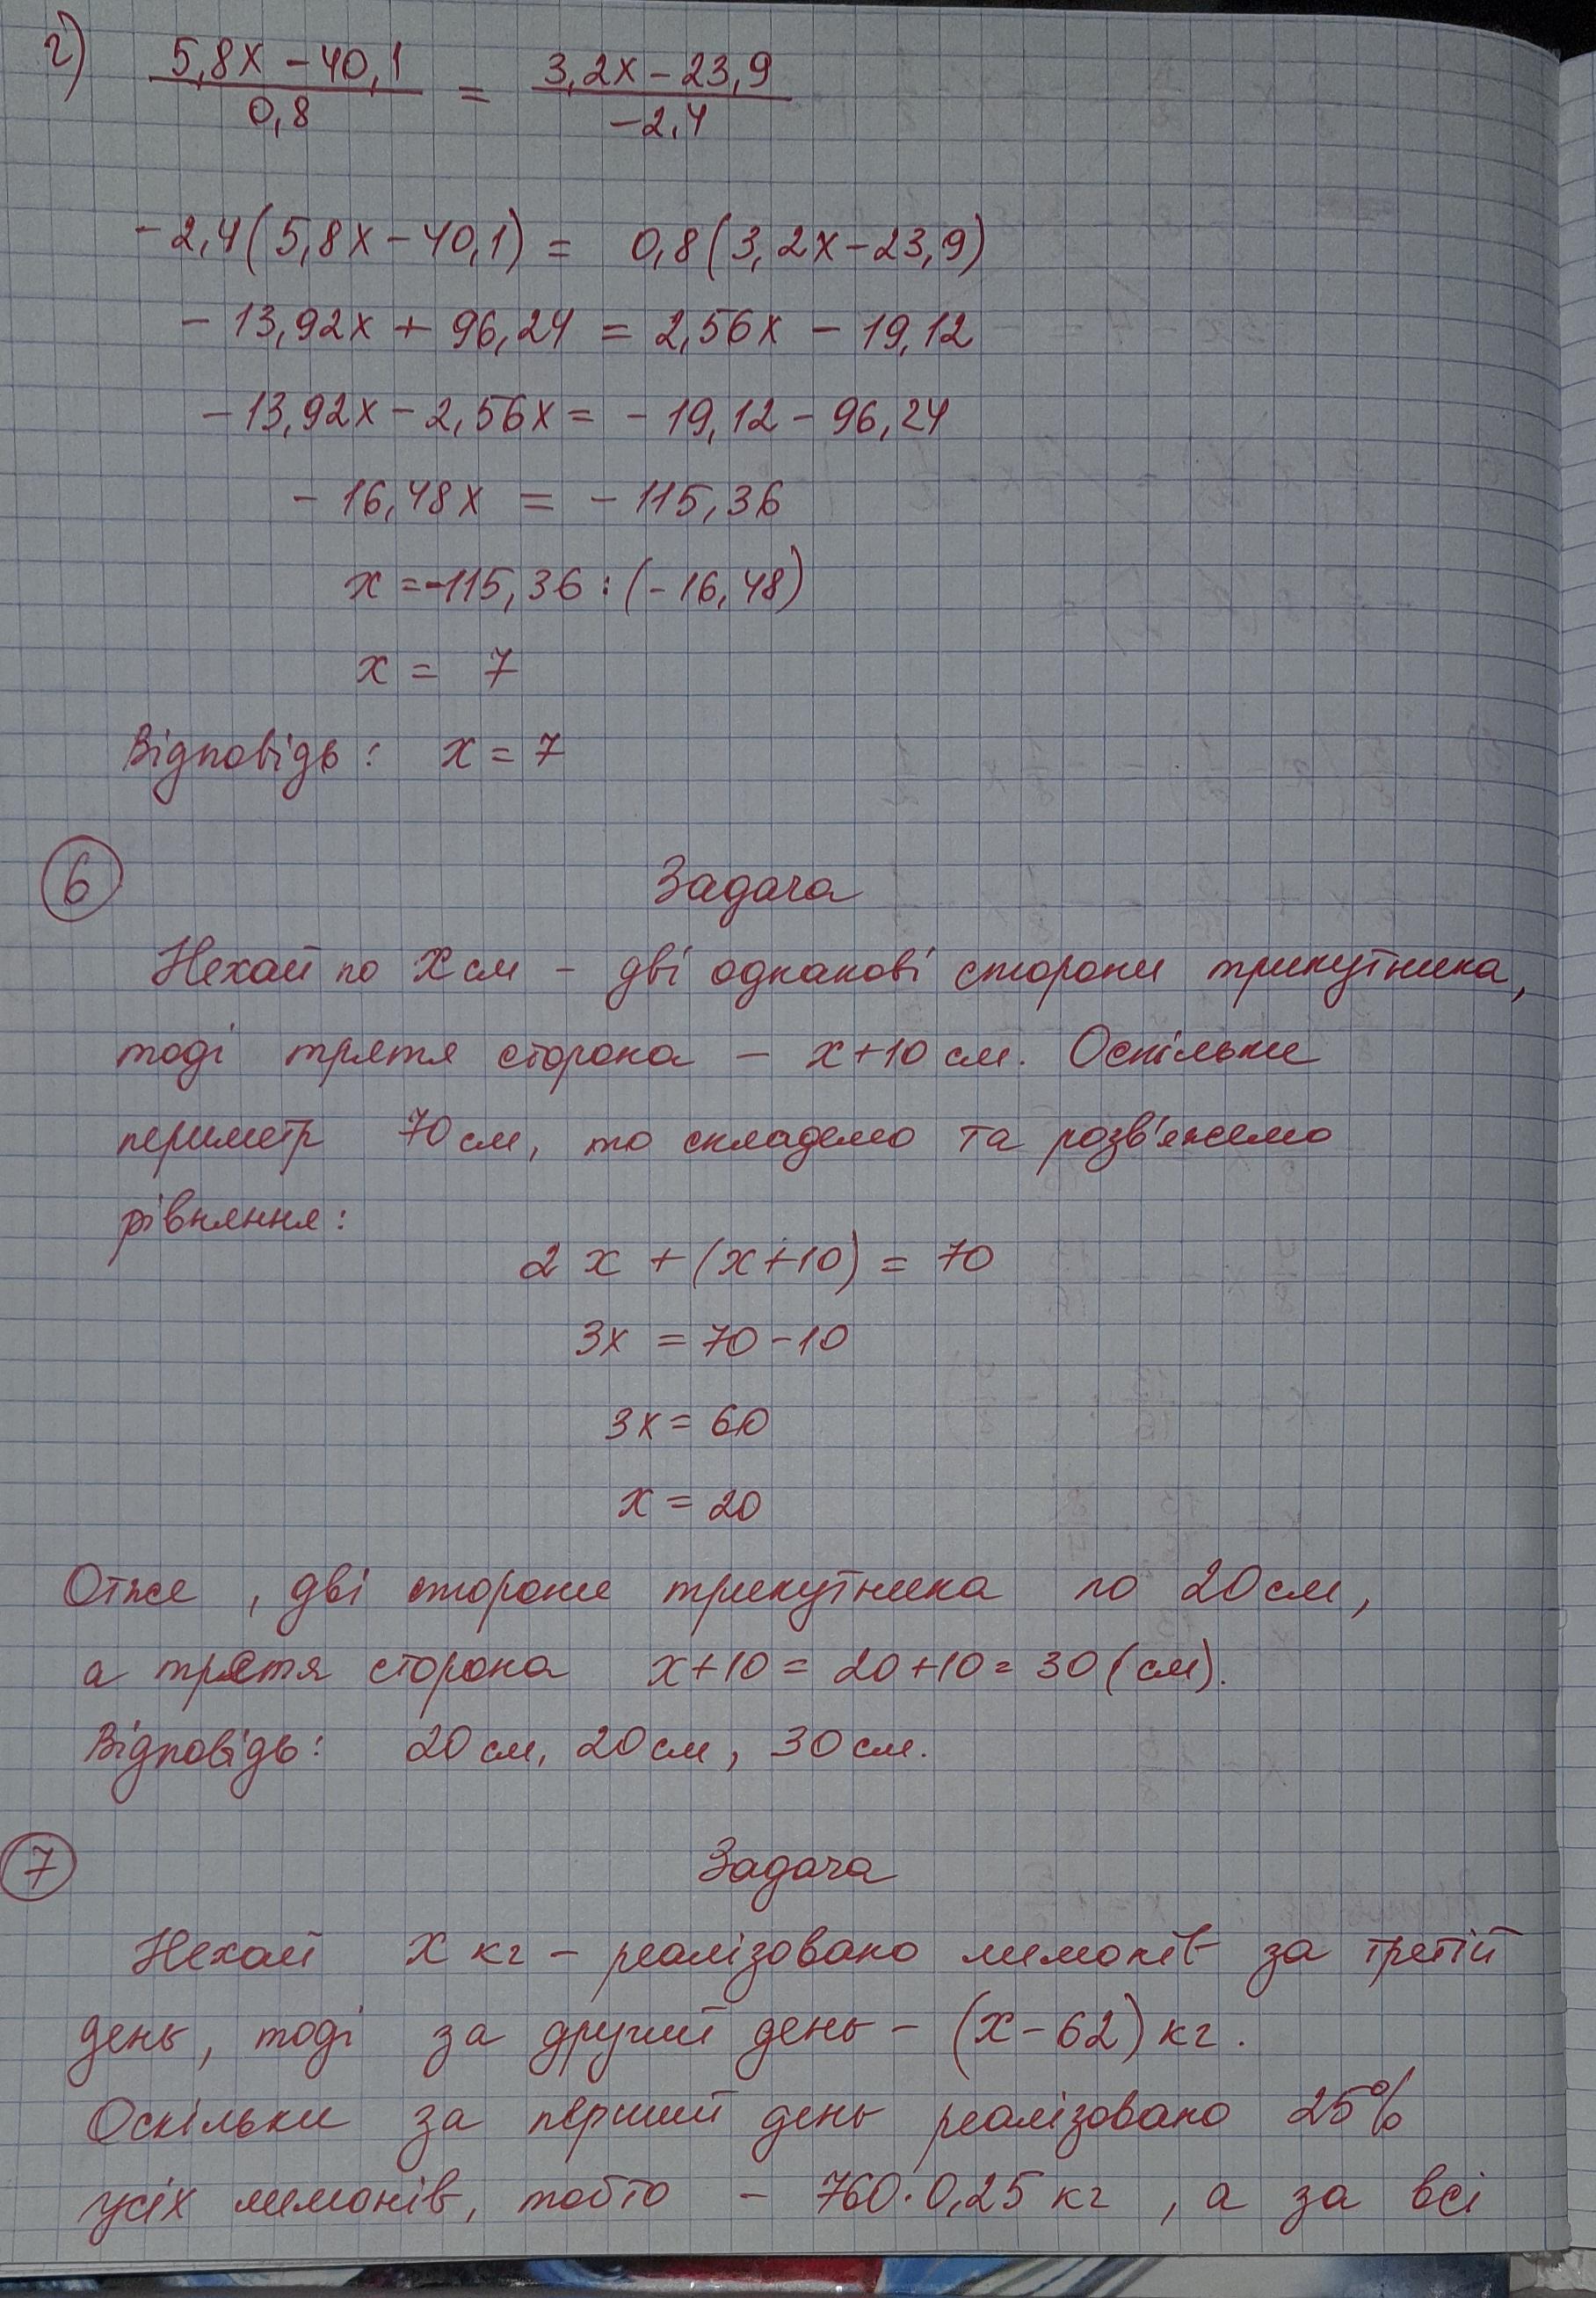 г) 5,8x − 40,1 / 0,8 = 3,2x − 23,9 / −2,4
−2,4(5,8x − 40,1) = 0,8(3,2x − 23,9)
− 13,92x + 96,24 = 2,56x − 19,12
− 13,92x − 2,56x = − 19,12 − 96,24
− 16,48x = − 115,36
x = −115,36 : (−16,48)
x = 7
Відповідь: x = 7
6 Задача
Нехай по x см – дві однакові сторони трикутника,
тоді третя сторона – x+10 см. Оскільки
периметр 70 см, то складемо та розв'яжемо
рівняння:
2x + (x+10) = 70
3x = 70 − 10
3x = 60
x = 20
Отже, дві сторони трикутника по 20 см,
а третя сторона x+10 = 20+10 = 30 (см).
Відповідь: 20 см, 20 см, 30 см.
7 Задача
Нехай x кг – реалізовано лимонів за третій
день, тоді за другий день – (x − 62) кг.
Оскільки за перший день реалізовано 25%
усіх лимонів, тобто – 760·0,25 кг, а за всі